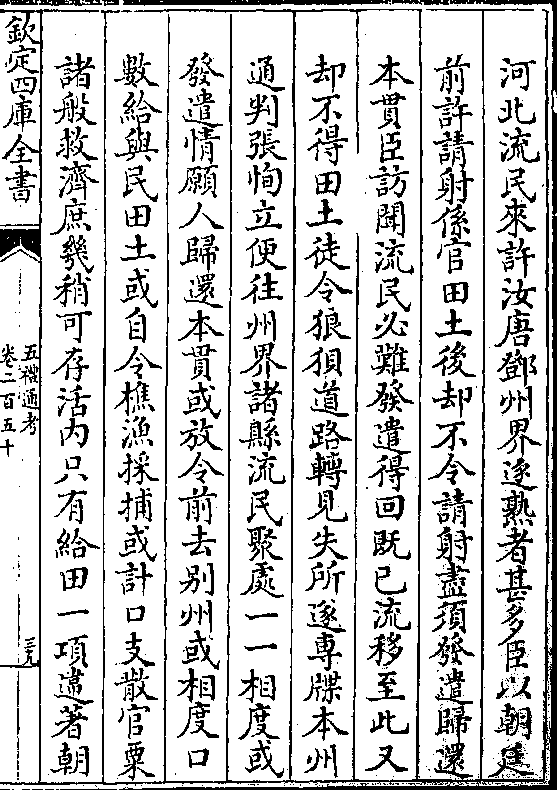 河北流民來許汝唐鄧州界逐熟者甚多臣以朝廷
前許請射係官田土後却不令請射盡須發遣歸還
本貫臣訪聞流民必難發遣得回既已流移至此又
却不得田土徒令狼狽道路轉見失所遂專牒本州
通判張恂立便往州界諸縣流民聚處一一相度或
發遣情願人歸還本貫或放令前去别州或相度口
數給與民田土或自令樵漁採捕或計口支散官粟
諸般救濟庶幾稍可存活内只有給田一項違著朝
欽定四庫全書
五禮通考
卷二百五十
三九